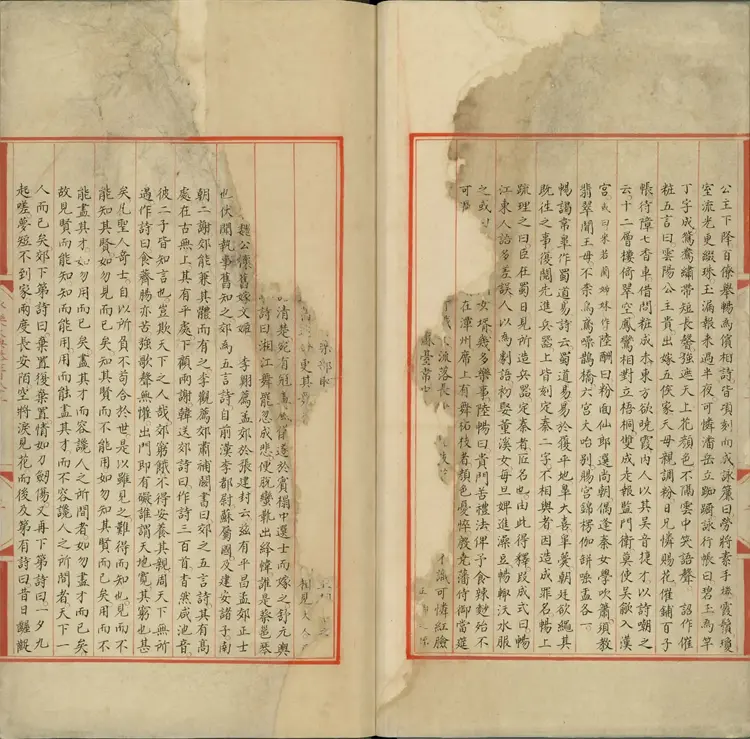 公主下降百僚舉暢為儐相詩皆頃刻而成詠簾曰勞將素手捲霞鬢瓊
室流光更綴珠玉漏報来過半夜可憐潘岳立踟蹰詠行帳曰碧玉為竿
丁字成鴛鴦繡帶短長馨強遮天上花顏色不隔雲中笑語聲 詔作催
粧五言曰雲陽公主貴出嫁五侯家天母親調粉日兄憐賜花催鋪百子
帳待障七香車借問粧成未東方欲曉霞内人以其吴音捷才以詩嘲之
云十二層樓倚翠空鳳鸞相對立梧桐雙成走報監門衛莫使吴歈入漢
宮或曰宋若蘭姊妹作陸酬曰粉面仙郎選尚朝偶逢秦女學吹簫須教
翡翠聞王母不柰烏鳶噪鵲橋六宮大咍別賜宮錦楞伽缾唾盂各一
暢謁韋皋作蜀道易詩云蜀道易易於履平地皋大喜皋薨朝廷欲繩其
既徃之事復閱先進兵器上皆刻定秦二字不相與者因造成罪名暢上
疏理之曰臣在蜀日見所造兵器定秦者匠名也由此得釋段成式曰暢
江東人語多差誤人以為劇語初娶童溪女每旦婢進澡豆暢輙沃水服
之或 女壻幾多樂事陸暢曰貴門苦禮法俾予食辣麨殆不
可 在潭州席上有舞柘枝者顏色憂悴殷堯藩侍御當筵
波落長 不識可憐紅臉
相見大
清楚宛有 於賓榻中選士而嫁之舒元輿
詩曰湘江舞罷忽成悲便脫蠻靴出絳幃誰是蔡邕琴
魏公懷舊嫁文姬 李翺薦孟郊於張建封云兹有平昌孟郊正士
也伏聞執事舊知之郊為五言詩自前漢李都尉蘇屬國及建安諸子南
朝二謝郊能兼其體而有之李觀薦郊蕭補闕書曰郊之五言詩其有高
處在古無上其有平處下顧兩謝韓送郊詩曰作詩三百首杳然咸池音
彼二子皆知言也豈欺天下之人哉郊窮餓不得安養其親周天下無所
遇作詩曰食薺腸亦苦強歌聲無懽出門即有礙誰謂天地寬其窮也甚
矣凡聖人奇士自以所負不苟合於世是以雖見之難得而知也見而不
能知其賢如勿見而已矣知其賢而不能用如勿知其賢而已矣用而不
能盡其才如勿用而已矣盡其才而容讒人之所間者如勿盡才而已矣
故見賢而能知知而能用用而能盡其才而不容讒人之所間者天下一
人而已矣郊下第詩曰棄置復棄置情如刀劍傷又再下第詩曰一夕九
起嗟夢短不到家兩度長安陌空將淚見花而後及第有詩曰昔日齷齪